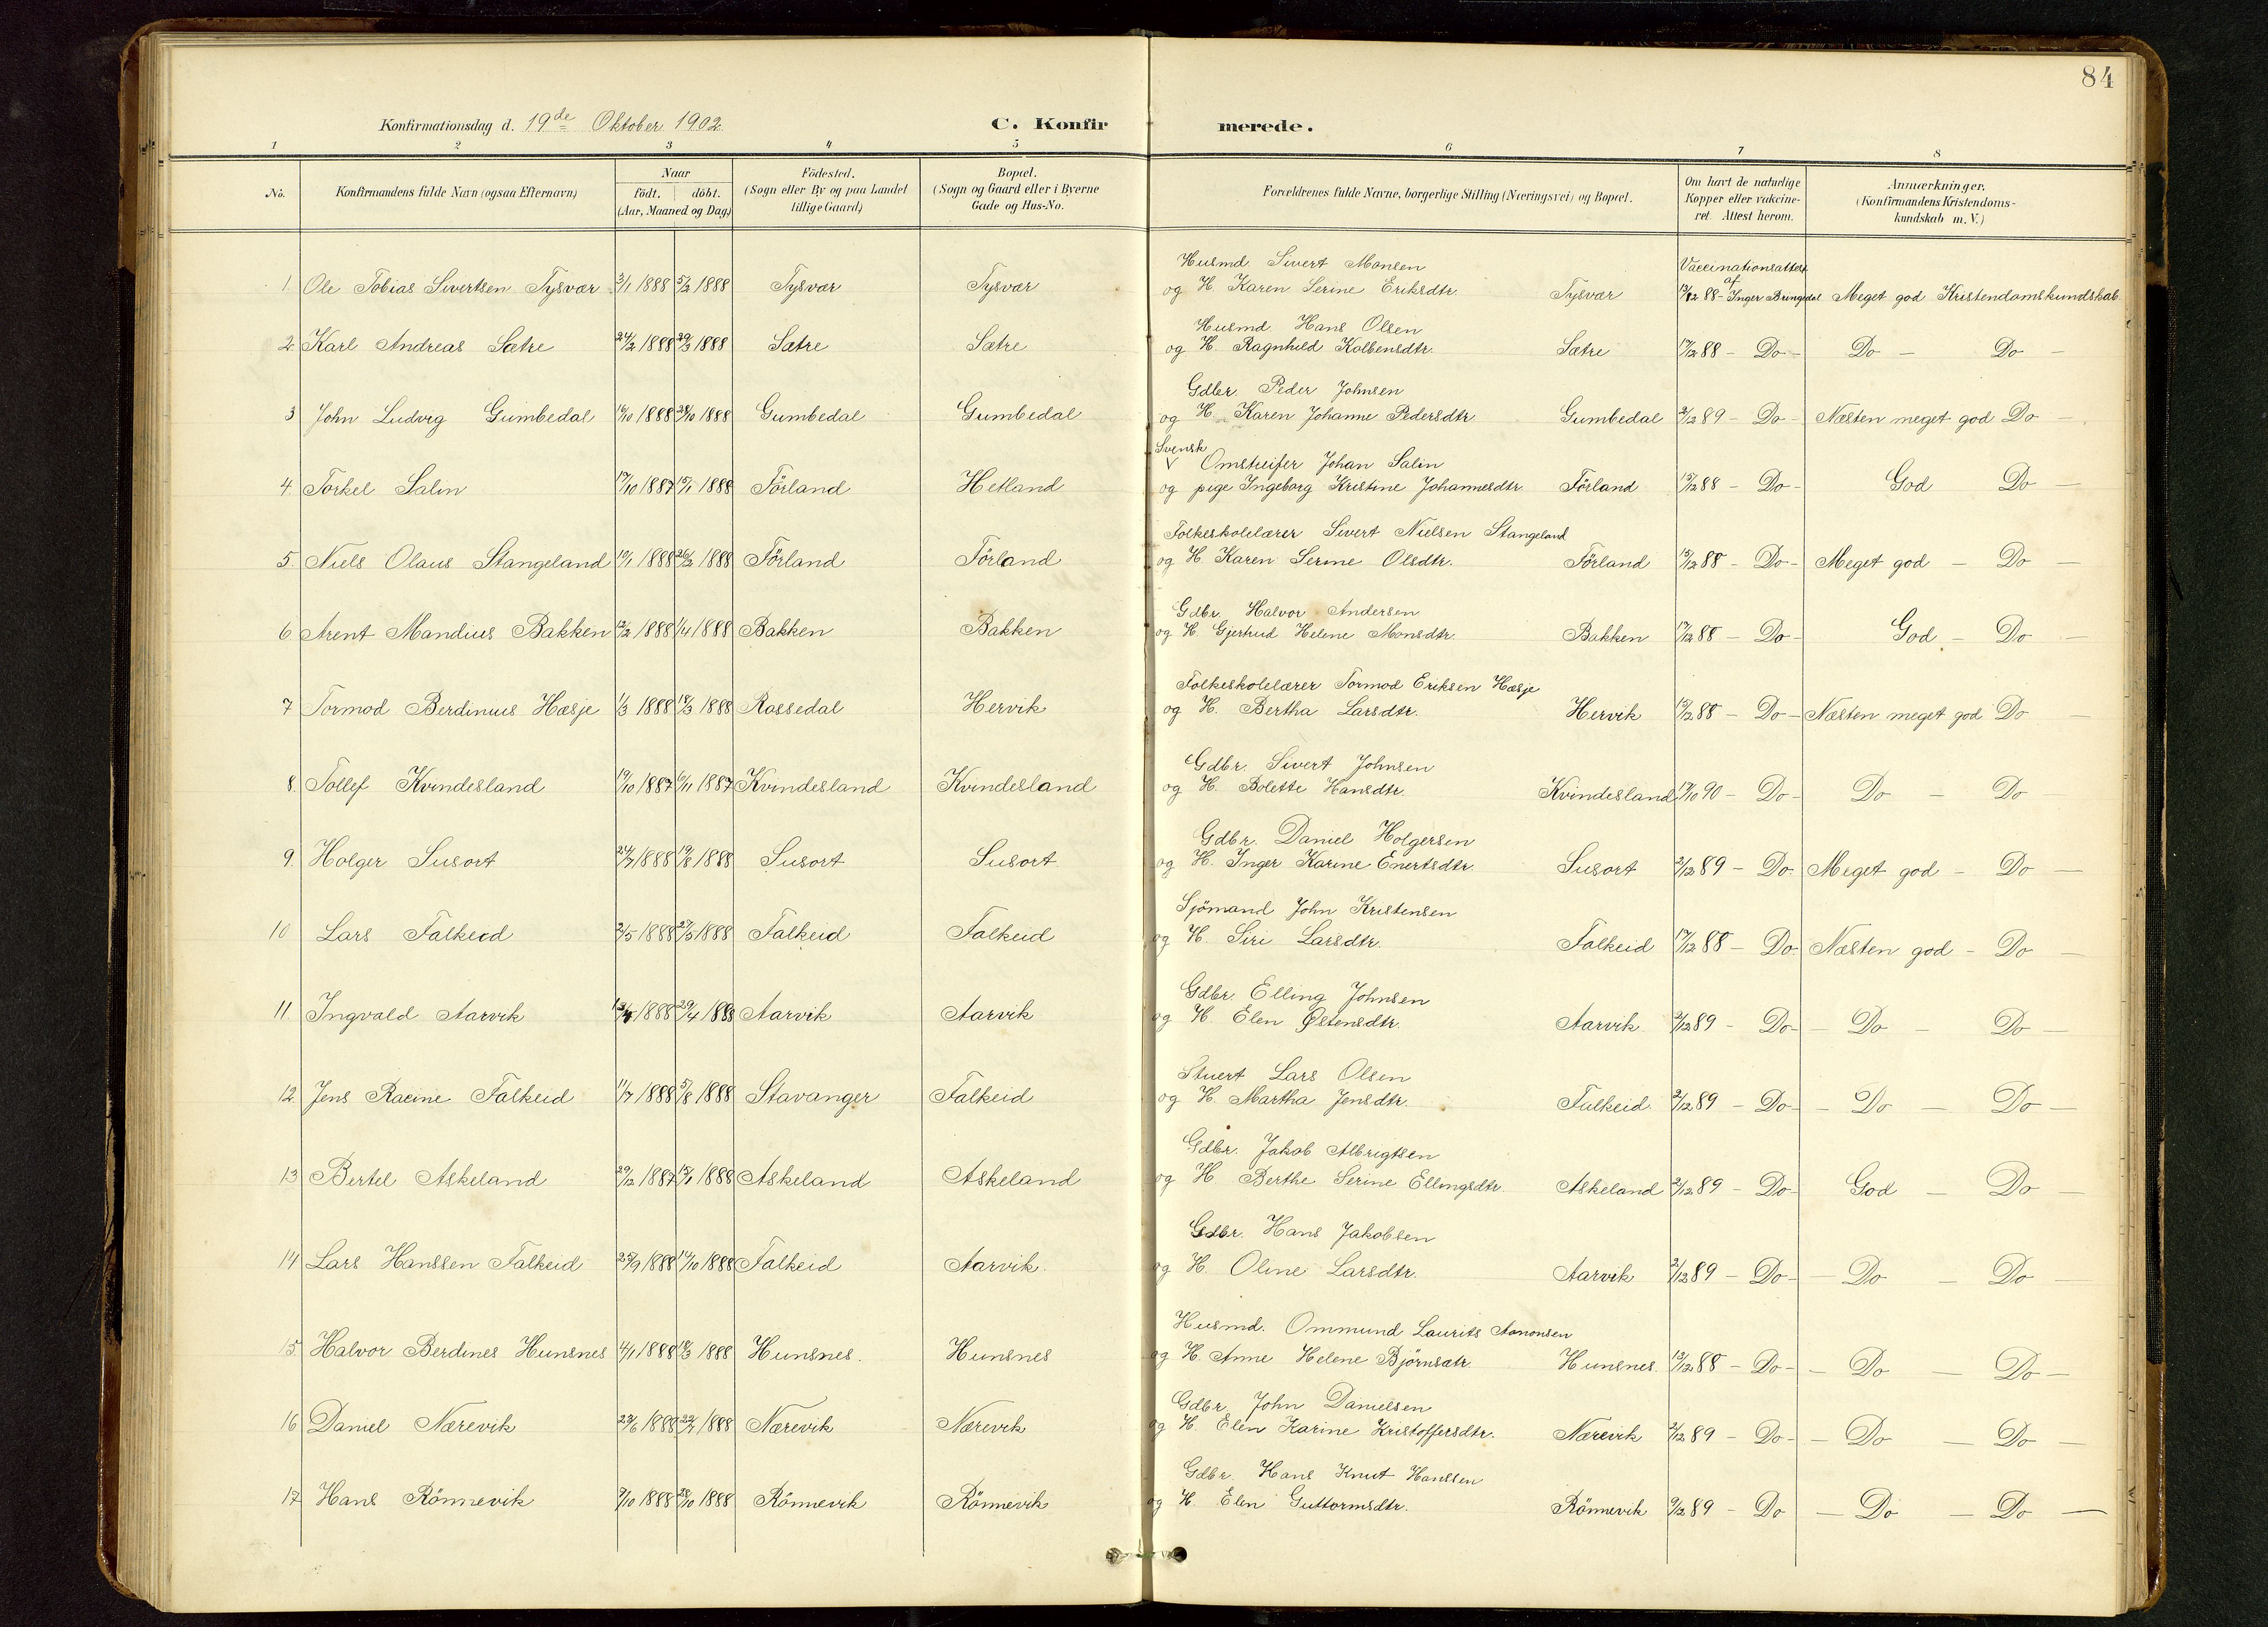 84
Konfirmationsdag d. 19de Oktober 1902.
C. Konfirmerede.
1 2 3 4 5 6 7 8
No. Konfirmandens fulde Navn (ogsaa Efternavn) Naar födt. döbt. (Aar, Maaned og Dag.) Födested. (Sogn eller By og paa Landet tillige Gaard) Bopæl. (Sogn og Gaard eller i Byerne Gade og Hus-No. Forældrenes fulde Navne, borgerlige Stilling (Næringsvei) og Bopæl. Om havt de naturlige Kopper eller vakcineret. Attest herom. Anmærkninger. (Konfirmandens Kristendomskundskab m. V.)
Husmd. Sivert Monsen Vaccinationsattest af
1. Ole Tobias Sivertsen Tysvær 3/1 1888 5/2 1888 Tysvær Tysvær og H. Karen Serine Eriksdtr. Tysvær 88 - Inger Bringedal Meget god Kristendomskundskab.
Husmd. Hans Olsen
2. Karl Andreas Sætre 24/2 1888 29/3 1888 Sætre Sætre og H. Ragnhild Kolbensdtr. Sætre 17/12 88 - Do - Do - Do -
Gdbr. Peder Johnsen
3 John Ludvig Gumbedal 16/10 1888 28/10 1888 Gumbedal Gumbedal og H. Karen Johanne Pedersdtr. Gumbedal 2/12 89 - Do - Næsten meget god Do -
Svensk
V Omstreifer Johan Salin
4. Torkel Salin 17/10 1887 15/1 1888 Förland Hetland og pige Ingeborg Kristine Johannesdtr. Förland 15/12 88 - Do - God Do -
Folkeskolelærer Sivert Nielsen Stangeland
5. Niels Olaus Stangeland 10/1 1888 26/2 1888 Förland Förland og H. Karen Serine Olsdtr. Förland 15/12 88 - Do - Meget god - Do -
Gdbr. Halvor Andersen
6 Arent Mandius Bakken 12/2 1888 1/4 1888 Bakken Bakken og H. Gjertrud Helene Monsdtr. Bakken 17/12 88 - Do - God - Do -
Folkeskolelærer Tormod Eriksen Hæsje
7 Tormod Berdinius Hæsje 1/3 1888 18/3 1888 Rossedal Hervik og H. Bertha Larsdtr. Hervik 15/12 88 - Do - Næsten meget god Do -
Gdbr. Sivert Johnsen
8. Tollef Kvindesland 19/10 1887 6/11 1887 Kvindesland Kvindesland og H. Bolette Hansdtr. Kvindesland 17/10 90 - Do - Do - Do
Gdbr. Daniel Holgersen
9. Holger Susort 24/7 1888 19/8 1888 Susort Susort og H. Inger Karine Enertsdtr. Susort 2/12 89 - Do. Meget god - Do -
Sjömand John Kristensen
10 Lars Falkeid 3/5 1888 27/5 1888 Falkeid Falkeid og H. Siri Larsdtr. Falkeid 17/12 88 - Do. Næsten god - Do -
Gdbr. Elling Johnsen
11. Ingvald Aarvik 1888 29/4 1888 Aarvik Aarvik og H. Elen Østensdtr. Aarvik 2/12 89 - Do - - Do - Do -
Stuert Lars Olsen
12 Jens Racine Falkeid 11/7 1888 5/8 1888 Stavanger Falkeid og H. Martha Jensdtr. Falkeid. 2/12 89 - Do - - Do - Do -
Gdbr. Jakob Albrigtsen
13 Bertel Askeland 29/12 1887 15/1 1888 Askeland Askeland og H. Berthe Serine Ellingsdtr. Askeland 2/12 89 - Do - God - Do -
Gdbr. Hans Jakobsen
14 Lars Hanssen Falkeid 25/9 1888 14/10 1888 Falkeid Aarvik. og H. Oline Larsdtr. Aarvik 2/12 89 - Do - - Do - Do -
Husmd. Ommund Laurits Aanonsen
15. Halvor Berdines Hunsnes 4/1 1888 18/3 1888 Hunsnes. Hunsnes og H. Anne Helene Björnsdtr Hunsnes. 13/12 88 - Do - - Do - Do -
Gdbr. John Danielsen
16 Daniel Nærevik 22/6 1888 22/7 1888 Nærevik Nærevik og H. Elen Karine Kristoffersdtr. Nærevik 2/12 89 - Do - - Do - Do -
Gdbr. Hans Knut Hanssen
17 Hans Rönnevik 9/10 1888 28/10 1888 Rönnevik Rönnevik og H. Elen Guttormsdtr. Rönnevik 9/12 89 - Do - Do - Do -